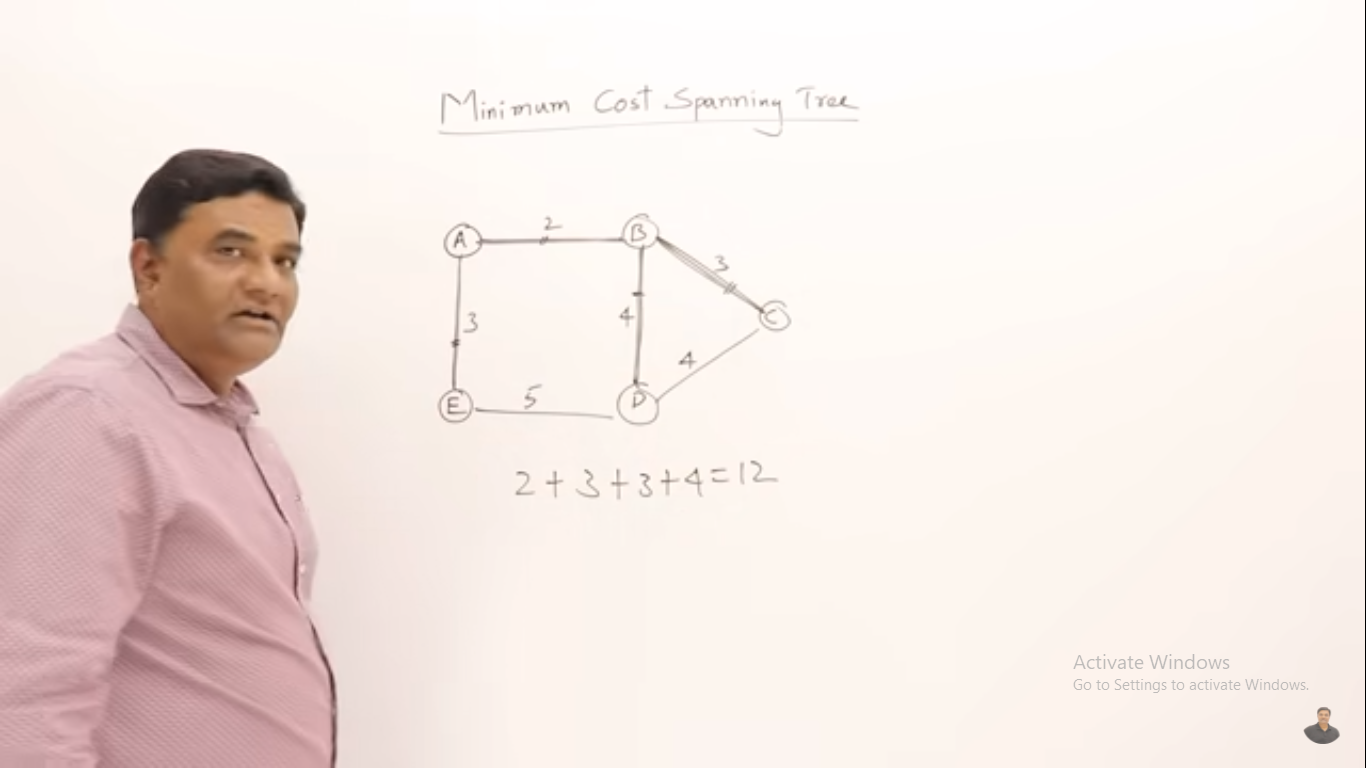 Minimum Cost Spanning Tree
A 2 B
3
C
3
4
4
E 5 D
2+3+3+4=12
Activate Windows
Go to Settings to activate Windows.